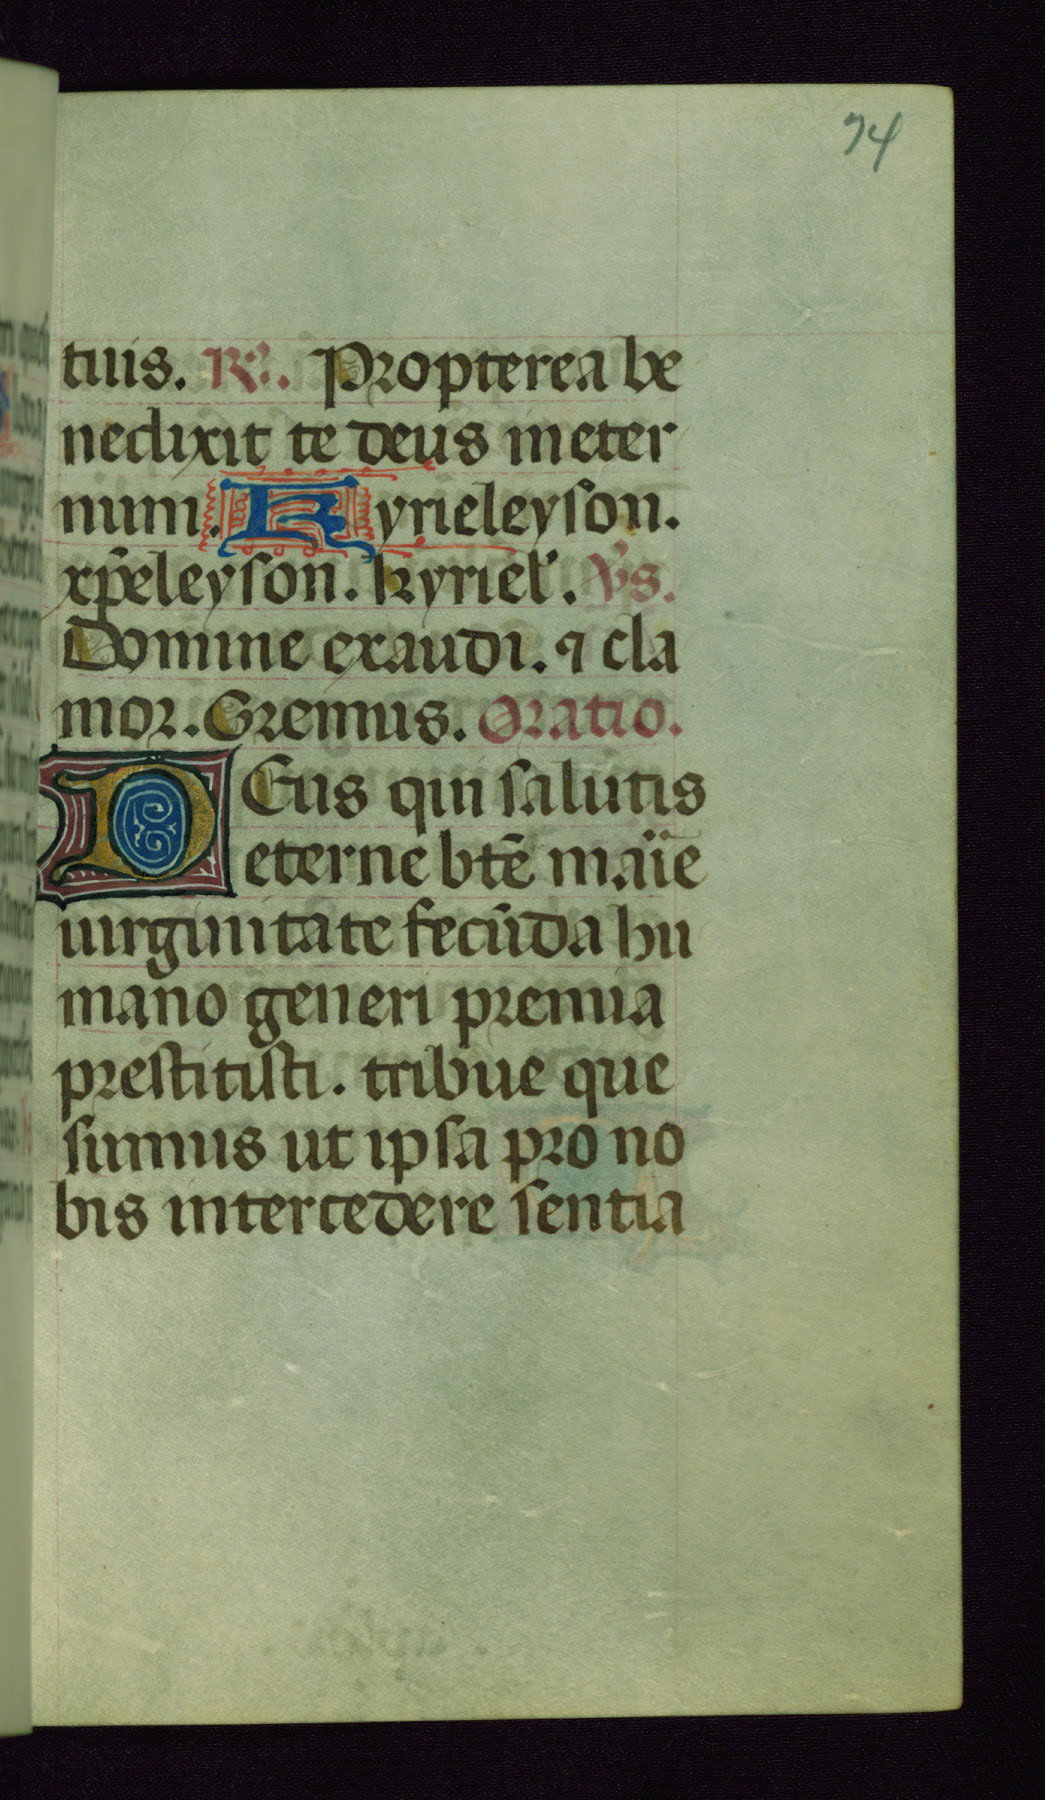 74
tuis. R̃. Propterea be
nedixit te deus in eter
num. Kyrieleyson.
xp̃eleyson. kyriel'. V̾s.
Domine exaudi. ⁊ cla
mor. Oremus. Oratio.
DEus qui salutis
eterne bt̃e marie
uirginitate fecũda hu
mano generi premia
prestitisti. tribue que
sumus ut ipsa pro no
bis intercedere sentia